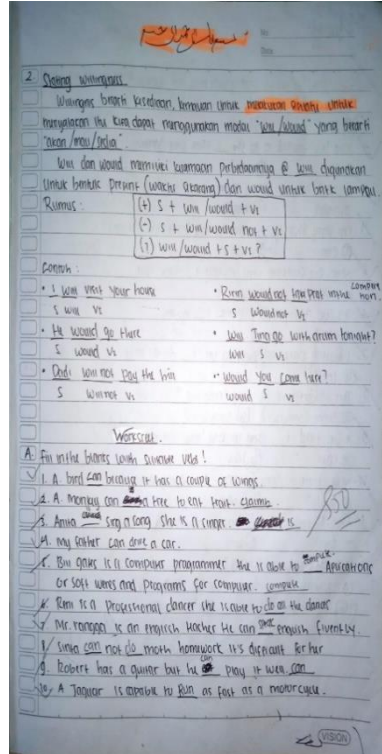 2. Stating Willingness
Willingnes berarti kesediaan, kemauan untuk melakukan sesuatu untuk
menyatakan itu kita dapat menggunakan modal "will/would" yang berarti
"akan/mau/sedia".
Will dan would memiliki kesamaan perbedaannya @ will digunakan
untuk bentuk present (waktu sekarang) dan would untuk lampau
Rumus: (+) S + will/would + V1
(-) S + will/would not + V1
(?) Will/would + S + V1?
Contoh:
• I will visit your house • Rizm would not in the
S will V1 S would not V1
• He would go there • Will Tina go with arum tonight?
S would V1 will S V1
• Dodi will not pay the • Would you come here?
S will not V1 would S V1
Worksheet
A. Fill in the blanks with suitable verbs!
1. A. bird can because it has a couple of wings.
2. A. monkey can a tree to eat fruit.
3. Anita sing a song. she is a singer. is
4. My father can drive a car.
5. Bill gates is a computer programmer. he is able to Aplications
or soft weres and programs for computer. compute
6. Reni is a professional dancer she is able to do all the dances
7. Mr. ranggon is an english teacher He can english fluently.
8. Sinta can not do math homework it's dificult for her
9. Robert has a guitar but he can play it well. can
10. A Jaguar is capable to Run as fast as a motorcycle.
VISION